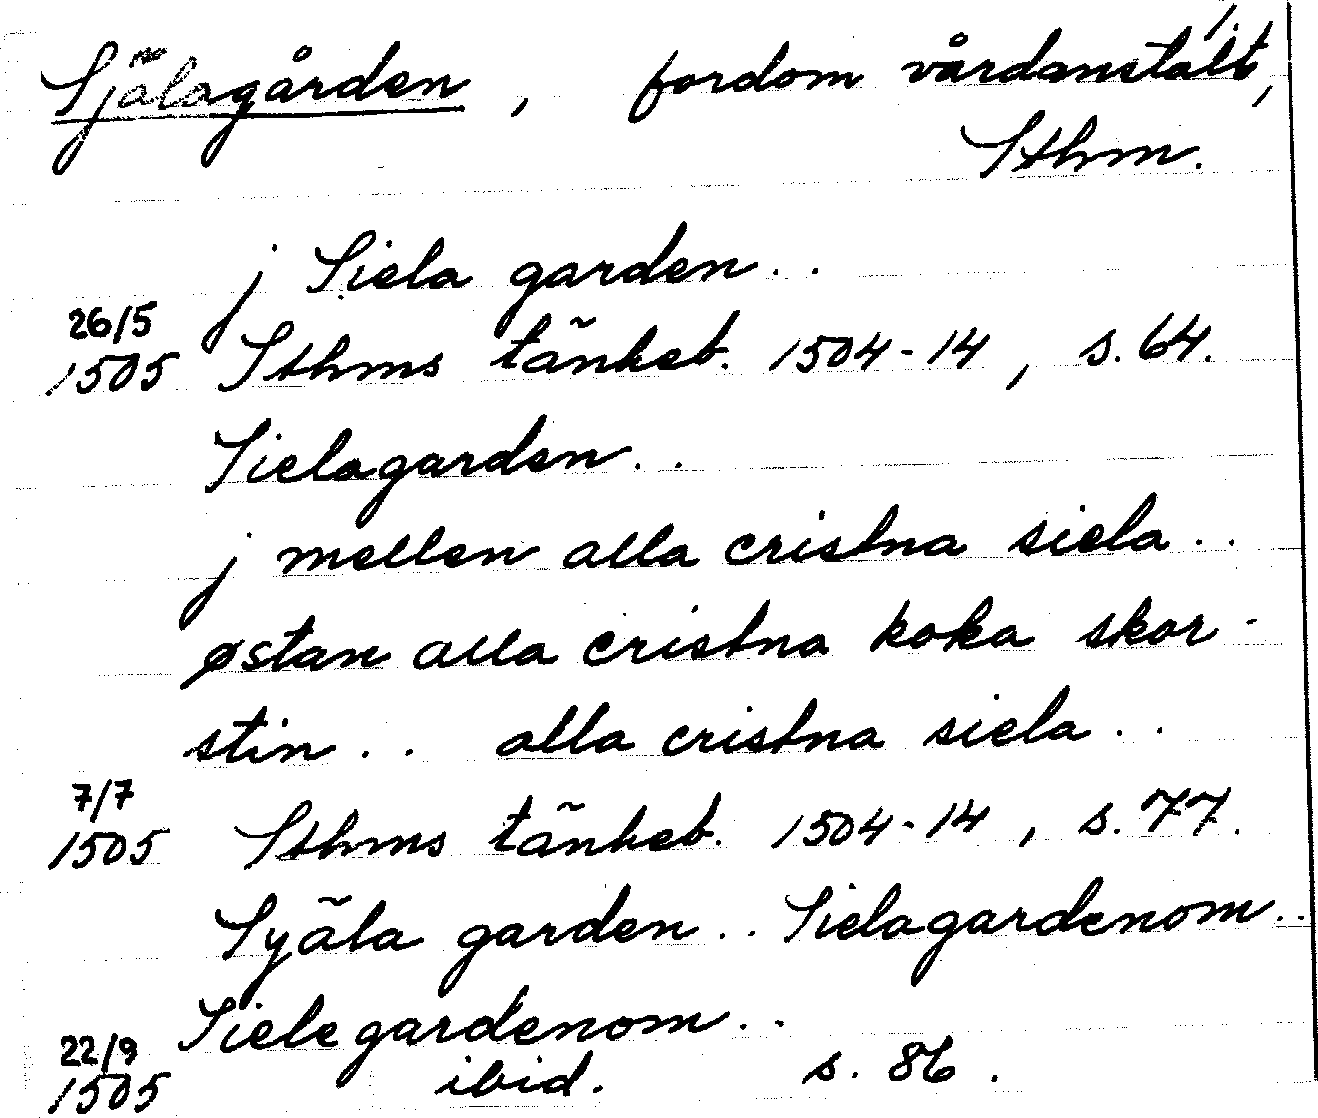 Själagården, fordom vårdanstalt i,
Sthm.
j Siela garden..
26/5
1505 Sthms tänkeb. 1504-14, s. 64.
Sielagarden..
j mellen alla cristna siela..
østan alla cristna koka skor-
stin.. alla cristna siela..
7/7
1505 Sthms tänkeb. 1504-14, s. 77.
Syäla garden.. Sielagardenom..
Sielegardenom..
22/9
1505 ibid. s. 86.